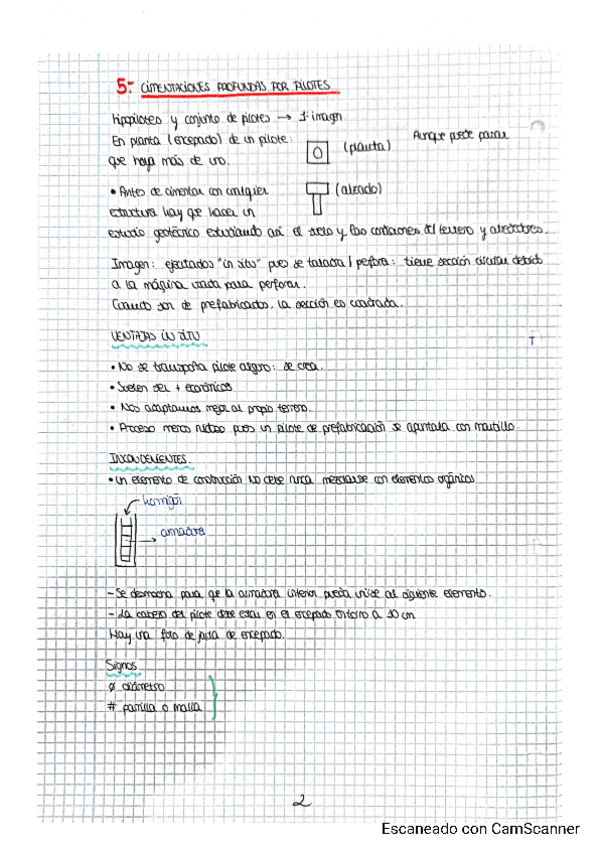 5.- CIMENTACIONES PROFUNDAS POR PILOTES
y conjunto de pilotes → 1ª imagen
En planta (encepado) de un pilote: (planta) Aunque puede pasar
que haya más de uno.
• Antes de cimentar con cualquier (alzado)
estructura hay que hacer un
estudio geotécnico estudiando así el suelo y las condiciones del terreno y alrededores.
Imagen: ejecutados "in situ" pues se taladra / perfora: tiene sección circular debido
a la máquina usada para perforar.
Cuando son de prefabricados, la sección es cuadrada.
VENTAJAS IN SITU
• No se transporta pilote alguno: se crea.
• Suelen ser + económicos
• Nos adaptamos mejor al propio terreno.
• Proceso menos ruidoso pues un pilote de prefabricación se apuntala con martillo.
INCONVENIENTES.
• Un elemento de construcción NO debe nunca mezclarse con elementos orgánicos
hormigón
armadura
- Se desmocha para que la armadura interior pueda unirse al siguiente elemento.
- La cabeza del pilote debe estar en el encepado entorno a 10 cm
Hay una foto de de encepado.
Signos
ø diámetro
# parrilla o malla
2
Escaneado con CamScanner